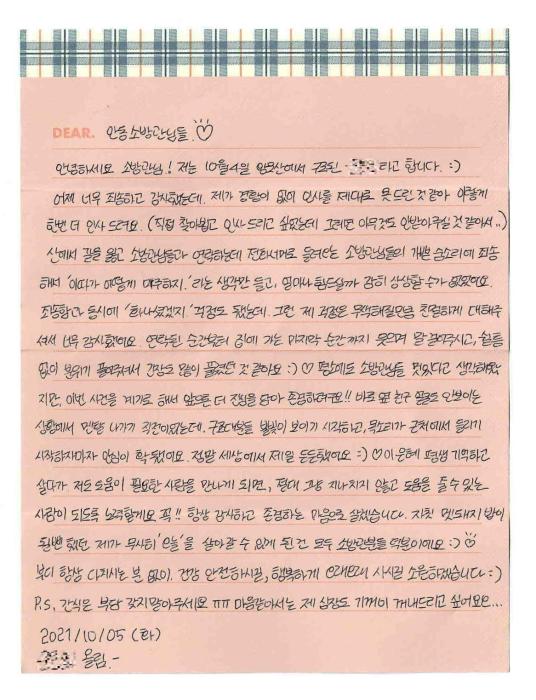 DEAR. 안동소방관님들. ♡
안녕하세요 소방관님! 저는 10월4일 안동산에서 구조된 라고 합니다. :)
어제 너무 죄송하고 감사했는데, 제가 경황이 없어 인사를 제대로 못드린 것 같아 이렇게
한번 더 인사 드려요. (직접 찾아뵙고 인사드리고 싶었는데 그러면 아무것도 안받아주실 것 같아서..)
산에서 길을 잃고 소방관님들과 연락하는데 전화너머로 들려오는 소방관님들의 가쁜 숨소리에 죄송
해서 '이따가 어떻게 마주하지.' 라는 생각만 들고, 얼마나 힘드실까 감히 상상할 수가 없었어요.
죄송함과 동시에 '화나셨겠지.' 걱정도 됐는데, 그런 제 걱정은 무색해질만큼 친절하게 대해주
셔서 너무 감사했어요. 연락된 순간부터 집에 가는 마지막 순간까지 웃으며 말 걸어주시고, 쉴틈
없이 분위기 풀어주셔서 긴장도 많이 풀렸던 것 같아요 :) ♡ 평소에도 소방관님들 멋있다고 생각해왔
지만, 이번 사건을 계기로 해서 앞으론 더 진심을 담아 존경하려구요!! 바로 옆 친구 얼굴도 안보이는
상황에서 멘탈 나가기 직전이었는데, 구조대분들 불빛이 보이기 시작하고, 목소리가 근처에서 들리기
시작하자마자 안심이 확 됐어요. 정말 세상에서 제일 든든했어요 :) ♡ 이 은혜 평생 기억하고
살다가 저도 도움이 필요한 사람을 만나게 되면, 절대 그냥 지나치지 않고 도움을 줄 수 있는
사람이 되도록 노력할게요 꼭!! 항상 감사하고 존경하는 마음으로 살겠습니다. 자칫 멧돼지 밥이
될뻔 했던 제가 무사히 '오늘'을 살아갈 수 있게 된 건 모두 소방관분들 덕분이에요 :) ♡
부디 항상 다치시는 분 없이, 건강 안전하시길, 행복하게 오래오래 사시길 소원하겠습니다 :)
P.s, 간식은 부담 갖지말아주세요 ㅠㅠ 마음같아서는 제 심장도 기꺼이 꺼내드리고 싶어요...
2021/10/05 (화)
올림.-